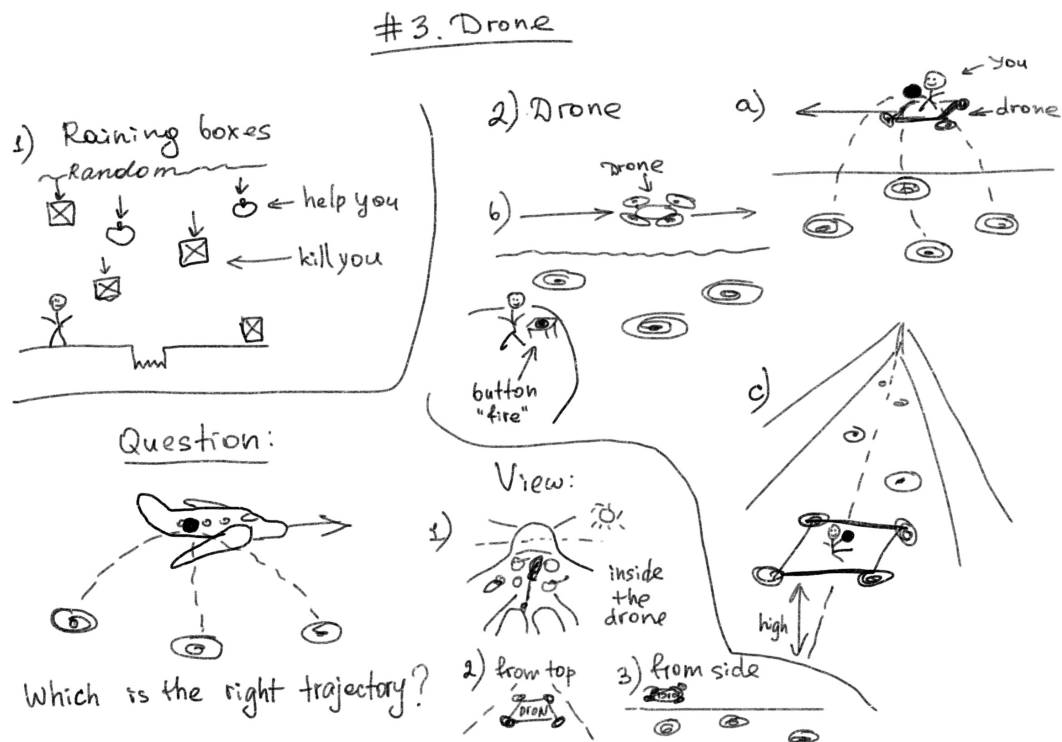 #3. Drone
1) Raining boxes
Random
help you
kill you
2) Drone
a)
you
drone
b)
Drone
button
"fire"
c)
high
Question:
Which is the right trajectory?
View:
1)
inside
the
drone
2) from top
DRON
3) from side